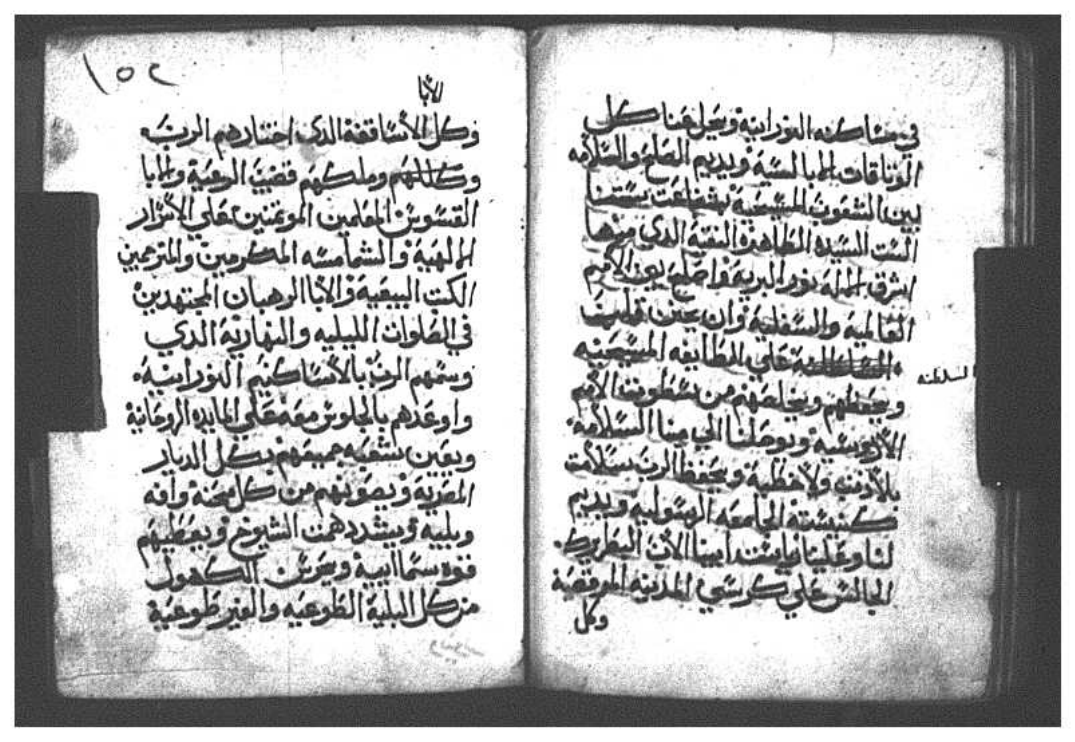 في مساكنه النورانيه ويحل عنا كل
الوثاقات الحبالسيه ويديم الصلح والسلامه
بين الشعوب المسيحيه بشفاعت ستنا
الست السيده الطاهره النقيه الذي منها
اشرق الله نور البريه واصلح بين الامم
العاليه والسفليه وان يحنن قلوب
السلطنه علي الطايفه المسيحيه
السلطنه
ويحفظهم ويخلصهم من سطوت الامم
بلا ذنب ولا خطيه ويحفظ الرب بسلامت
كنيسته الجامعه الرسوليه ويديم
لنا وعلينا رياست ابينا الاب البطريرك
الجالس علي كرسي المدينه المرقصية
وكل
١٥٢
الابا
وكل الاساقفة الذى اختارهم الرب
وكللهم وملكهم قضيب الرعية والابا
القسوس المعلمين الموتمنين علي الاسرار
الالهية والشمامسه المكرمين والمترجمين
الكتب البيعية والابا الرهبان المجتهدين
في الصلوات الليليه والنهارية الذي
وسمهم الرب بالاساكيم النورانيه
واوعدهم بالجلوس معه علي المايده الروحانية
ويعين شعبه جميعهم بكل الديار
المصرية ويصونهم من كل محنة وافه
وبليه ويشدد همت الشيوخ ويعطيهم
قوه سماايية ويحرس الكهول
من كل البلية الطوعيه والغير طوعية